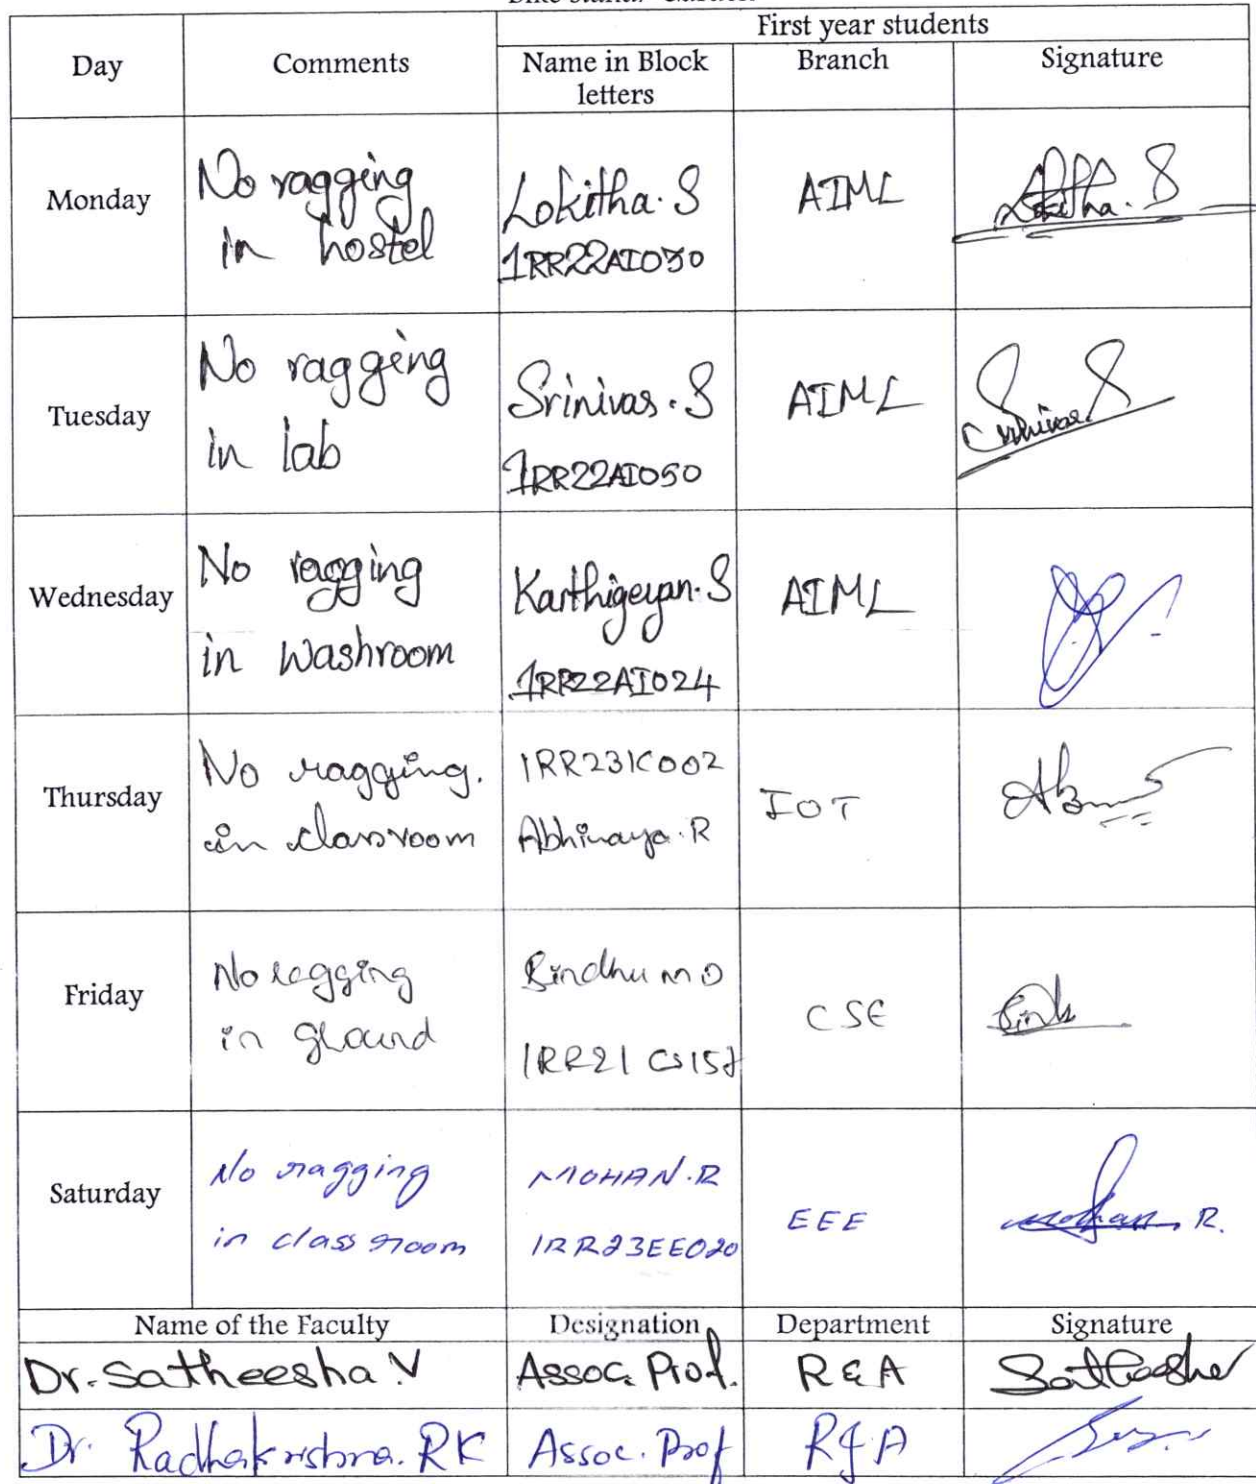 First year students
Day Comments Name in Block letters Branch Signature
Monday No ragging in hostel Lokitha. S 1RR22AI030 AIML Lokitha. S
Tuesday No ragging in lab Srinivas. S 1RR22AI050 AIML Srinivas S
Wednesday No ragging in washroom Karthigeyan. S 1RR22AI024 AIML
Thursday No ragging. in classroom 1RR23IC002 Abhinaya. R IOT
Friday No ragging in ground Bindhu M D 1RR21 CS157 CSE
Saturday No ragging in class room MOHAN. R 1RR23EE020 EEE Mohan R.
Name of the Faculty Designation Department Signature
Dr. Satheesha V Assoc. Prof. R & A Satheesha
Dr. Radhakrishna. RK Assoc. Prof R & A